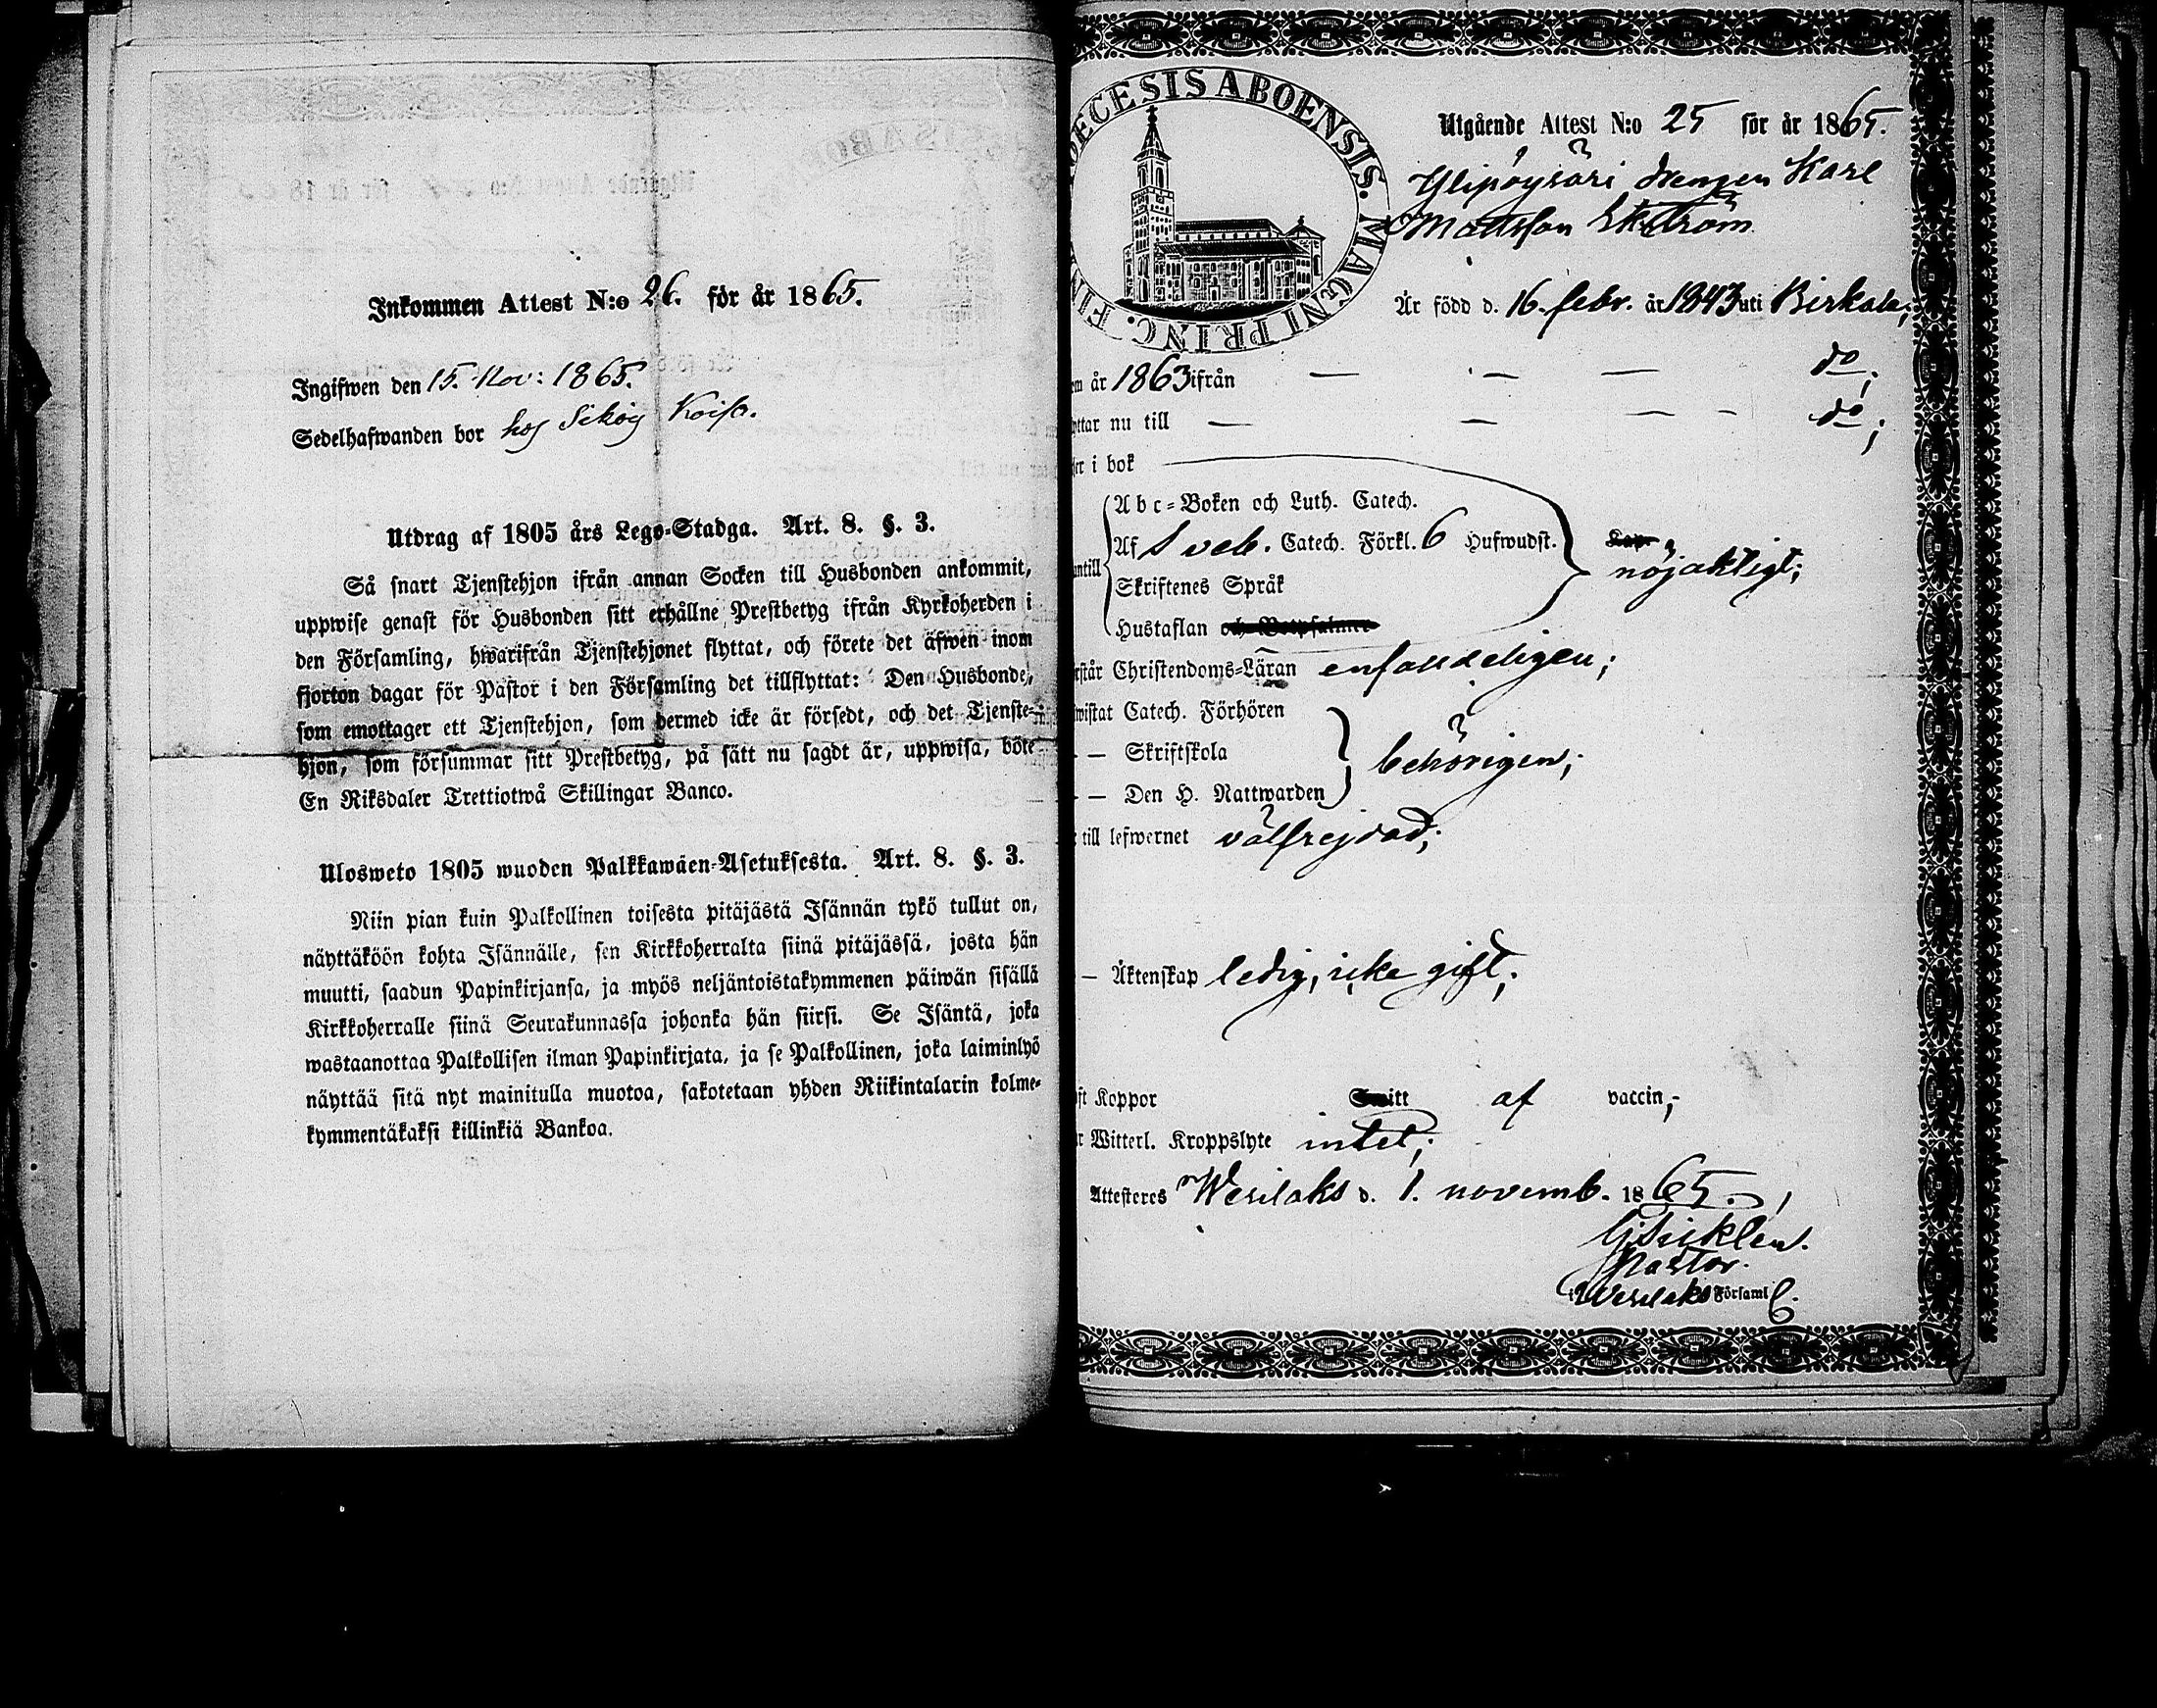 Inkommen Attest N:o 26. för år 1865.
Ingifwen den 15. Nov: 1865.
Sedelhafwanden bor hos
Utdrag af 1805 års Lego-Stadga. Art. 8. §. 3.
Så snart Tjenstehjon ifrån annan Socken till Husbonden ankommit,
uppwise genast för Husbonden sitt erhållne Prestbetyg ifrån Kyrkoherden i
den Församling, hwarifrån Tjenstehjonet flyttat, och förete det äfwen inom
fjorton dagar för Pastor i den Församling det tillflyttat: Den Husbonde,
som emottager ett Tjenstehjon, som dermed icke är försedt, och det Tjenste-
hjon, som försummar sitt Prestbetyg, på sätt nu sagdt är, uppwisa, böte
En Riksdaler Trettiotwå Skillingar Banco.
Ulosweto 1805 wuoden Palkkawäen-Asetuksesta. Art. 8. §. 3.
Niin pian kuin Palkollinen toisesta pitäjästä Isännän tykö tullut on,
näyttäköön kohta Isännälle, sen Kirkkoherralta siinä pitäjässä, josta hän
muutti, saadun Papinkirjansa, ja myös neljäntoistakymmenen päiwän sisällä
Kirkkoherralle siinä Seurakunnassa johonka hän siirsi. Se Isäntä, joka
wastaanottaa Palkollisen ilman Papinkirjata, ja se Palkollinen, joka laiminlyö
näyttää sitä nyt mainitulla muotoa, sakotetaan yhden Riikintalarin kolme-
kymmentäkaksi killinkiä Bankoa.
ECESIS ABOENSIS. MAGNI PRINC. FIN
Utgående Attest N:o 25 för år 1865.
Ylipöysäri drengen Karl
Mattsson Ekström
Är född d. 16. febr. år 1843 uti Birkala;
år 1863 ifrån — — — do;
nu till — — — - do;
i bok
Abc-Boken och Luth. Catech.
Af Sveb. Catech. Förkl. 6 Hufwudst.
nöjaktigt;
Skriftenes Språk
Hustaflan och Botpsalmer
Christendoms-Läran enfalldeligen;
Catech. Förhören
— Skriftskola
behörigen;
— Den H. Nattwarden
till lefwernet välfrejdad;
— Äktenskap ledig, icke gift;
Koppor Smitt af vaccin;
Witterl. Kroppslyte intet;
Attesteres Wesilaks d. 1. novemb. 1865.
Pastor.
i Wesilaks Församl.